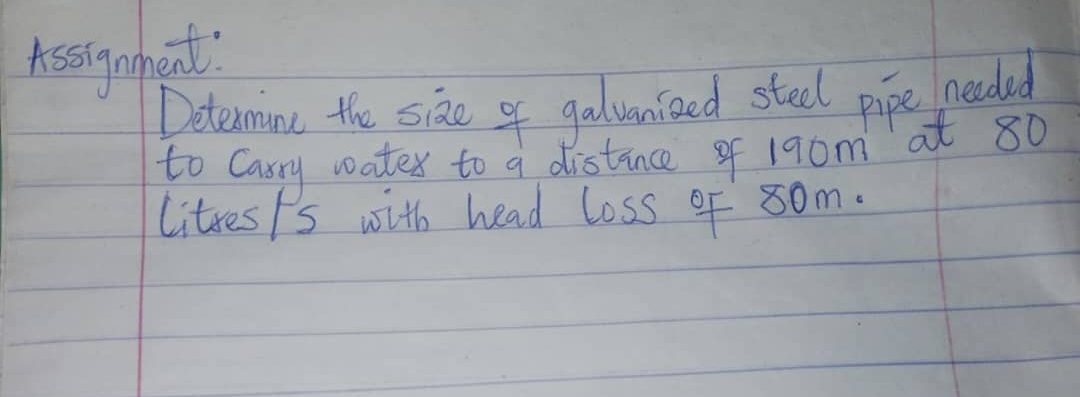 Assignment:
Determine the size of galvanized steel pipe needed
to Carry water to a distance of 190m at 80
litres/s with head loss of 80m.